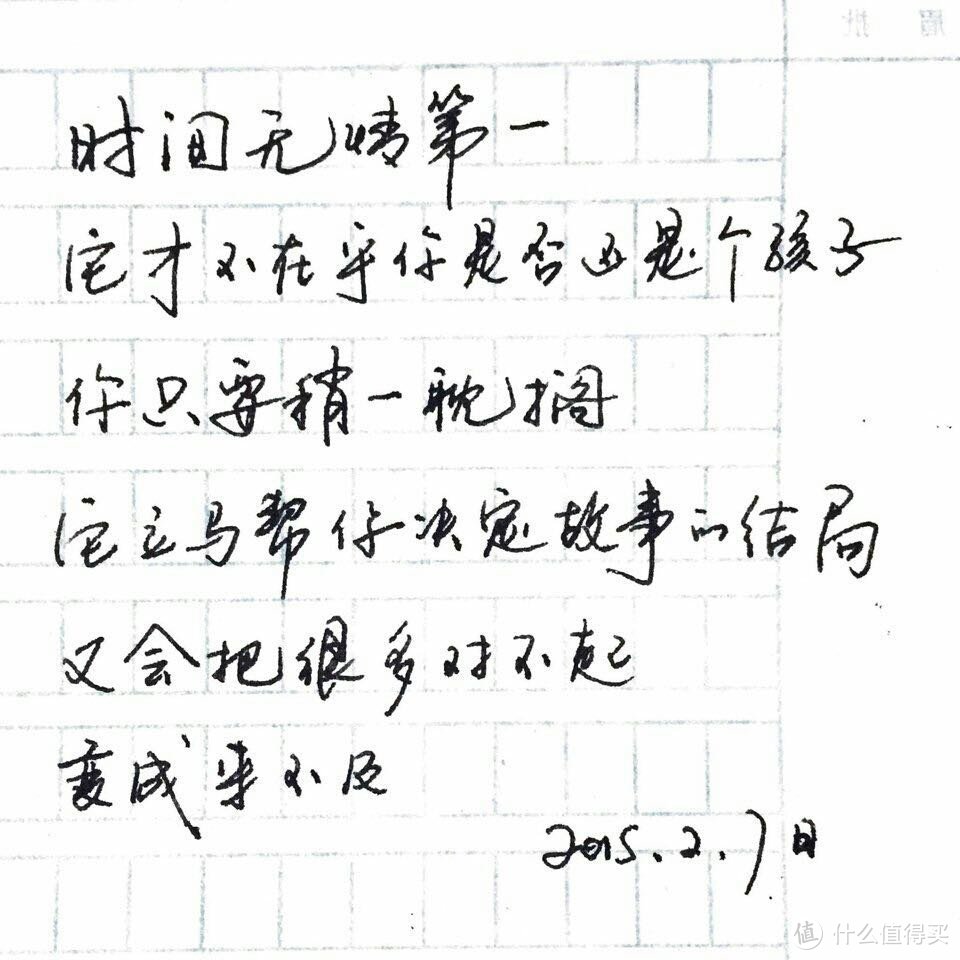 眉批
时间无情第一
它才不在乎你是否还是个孩子
你只要稍一耽搁
它立马帮你决定故事的结局
又会把很多对不起
变成来不及
2015.2.7日
值 什么值得买